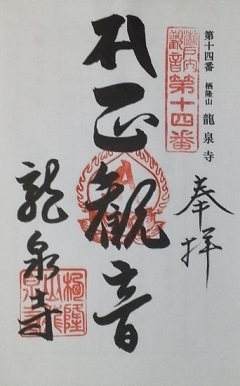 第十四番 栖隆山 龍泉寺
瀬戸内
観音
第十四番
奉拝
正観音
龍泉寺